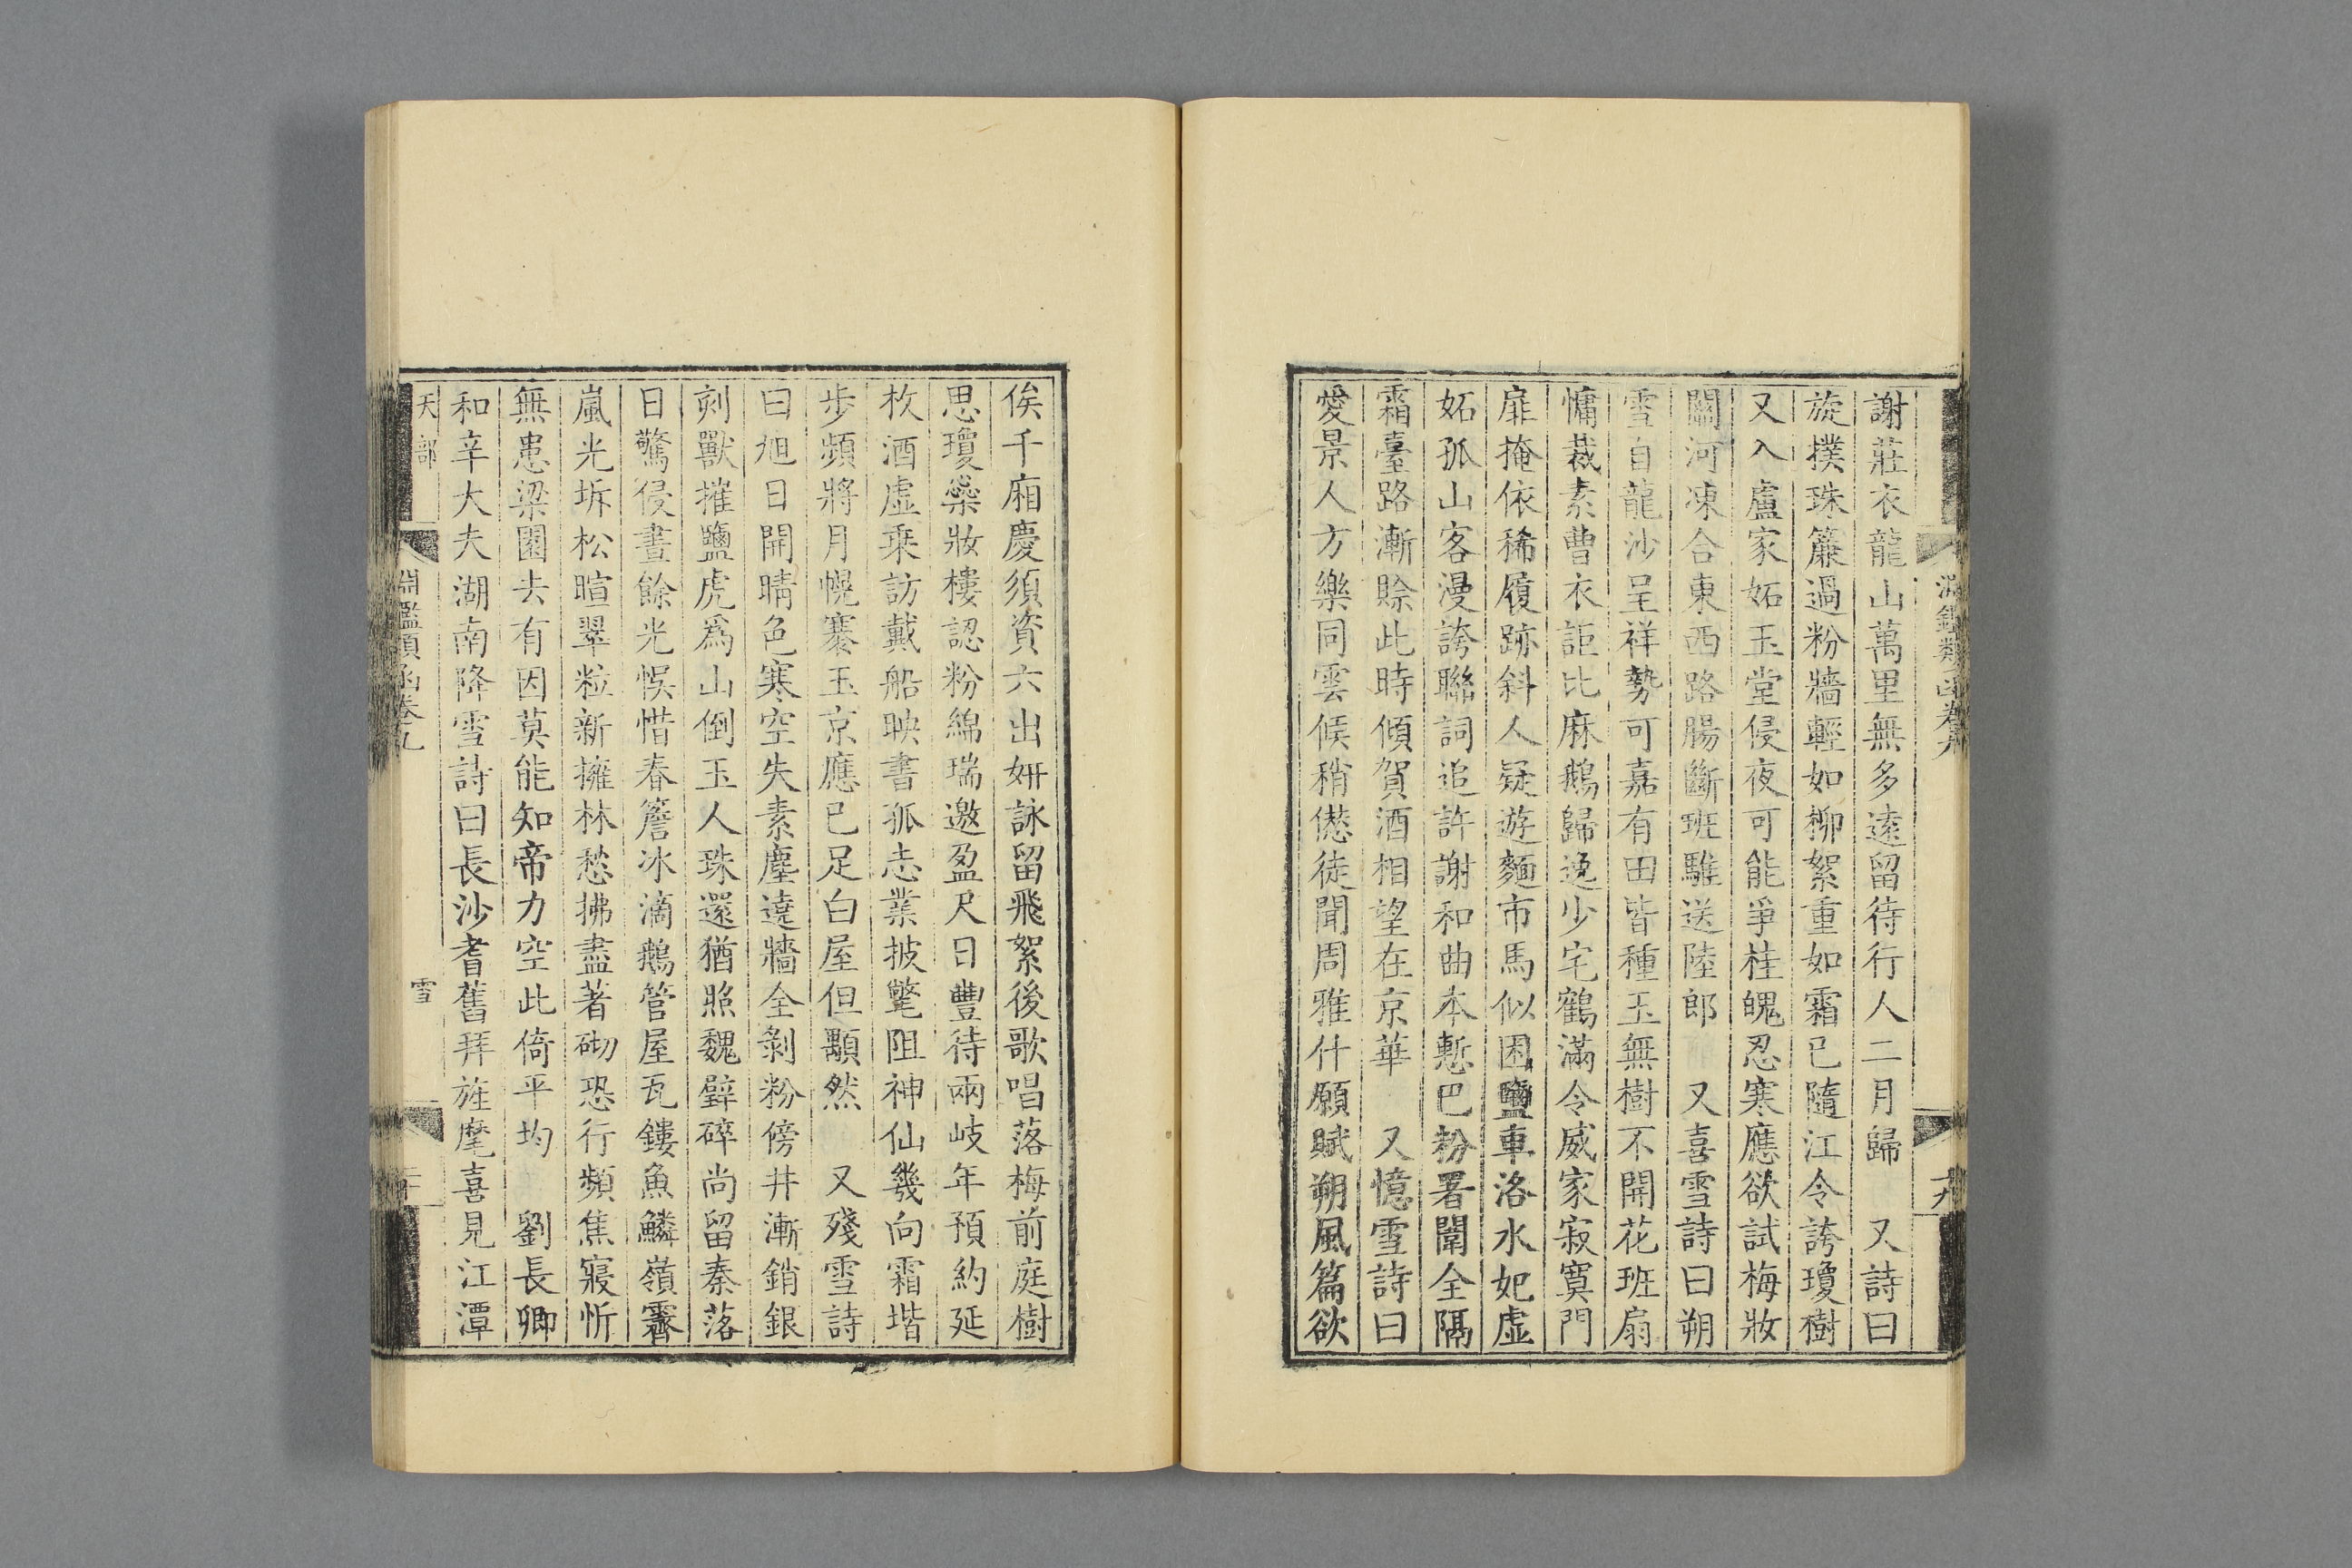 淵鑑類函卷九
十九
謝莊衣龍山萬里無多遠留待行人二月歸 又詩曰
旋撲珠簾過粉牆輕如柳絮重如霜已隨江令誇瓊樹
又入盧家妬玉堂侵夜可能爭桂魄忍寒應欲試梅妝
關河凍合東西路腸斷班騅送陸郎 又喜雪詩曰朔
雪自龍沙呈祥勢可嘉有田皆種玉無樹不開花班扇
慵裁素曹衣詎比麻鵝歸逸少宅鶴滿令威家寂寞門
扉掩依稀履跡斜人疑遊麵市馬似困鹽車洛水妃虛
妬孤山客漫誇聯詞追許謝和曲本慙巴粉署闈全隔
霜臺路漸賒此時傾賀酒相望在京華 又憶雪詩曰
愛景人方樂同雲候稍僁徒聞周雅什願賦朔風篇欲
俟千廂慶須資六出妍詠留飛絮後歌唱落梅前庭樹
思瓊蘂妝樓認粉綿瑞邀盈尺日豐待兩岐年預約延
枚酒虛乘訪戴船映書孤志業披氅阻神仙幾向霜堦
步頻將月幌褰玉京應已足白屋但顒然 又殘雪詩
曰旭日開晴色寒空失素塵遶牆全剝粉傍井漸銷銀
刻獸摧鹽虎爲山倒玉人珠還猶照魏璧碎尚留秦落
日驚侵晝餘光悞惜春簷冰滴鵝管屋瓦鏤魚鱗嶺霽
嵐光坼松暄翠粒新擁林愁拂盡著砌恐行頻焦寢忻
無患梁園去有因莫能知帝力空此倚平均 劉長卿
和辛大夫湖南降雪詩曰長沙耆舊拜旌麾喜見江潭
天部
淵鑑類函卷九
雪
二十